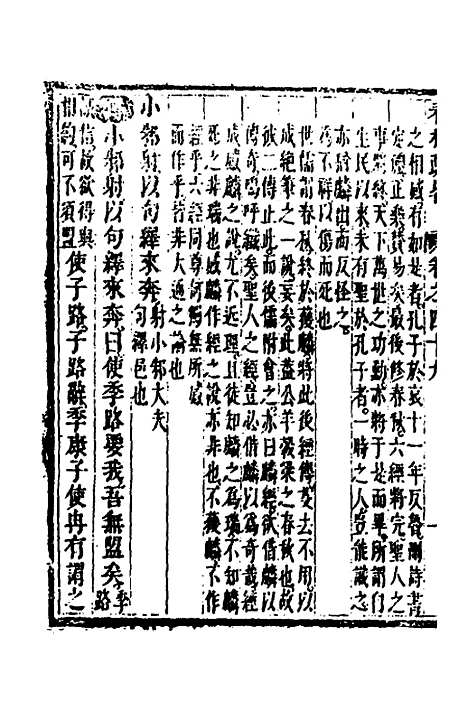 之相感有如是者孔子於哀十一年反魯刪詩書
定禮正樂贊易矣最後修春秋六經將完聖人之
事畢終天下萬世之功勳亦將于是而畢所謂
生民以來未有聖於孔子者一時之人豈能識之
亦對麟出而反怪之
爲不祥以傷而死也
世儒謂春秋終於獲麟將此後經傳
成絶筆之一說妄矣此蓋公羊穀梁之春秋也故
彼二傳止此而後儒附會之亦曰麟經欲借麟以
傳奇嗚呼鐵矣聖人之經豈必借麟以爲奇哉經
成感麟之說尤不近理且徒知麟之爲瑞不知麟
死之非瑞也感麟作經之說亦非也不獲麟不作
經乎六經同尊何獨無所感
而作者皆非大通之論也
小邾射以句繹來奔 射小邾大夫 句繹邑也
小邾射以句繹來奔曰使季路要我吾無盟矣 季路
信故欲得與 相約可不須盟 使子路子路辭季康子使冉有謂之